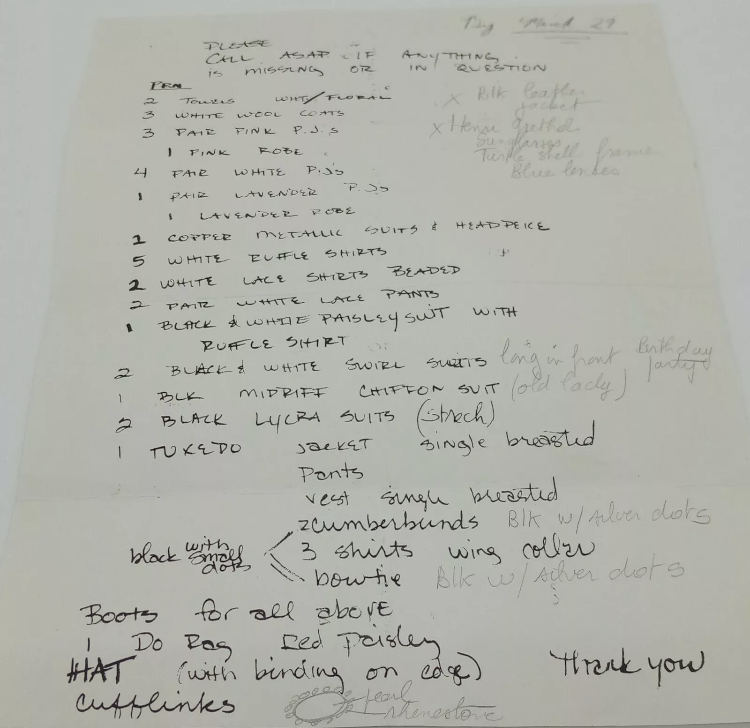 By March 29
PLEASE
CALL ASAP IF ANYTHING
IS MISSING OR IN QUESTION
2 TOWELS WHT/FLORAL
3 WHITE WOOL COATS
3 PAIR PINK P.J.S
1 PINK ROBE
4 PAIR WHITE P.J's
1 PAIR LAVENDER P.J's
1 LAVENDER ROBE
X Blk leather
jacket
X
sunglasses
Turtle shell frame
Blue lenses
2 COPPER METALLIC SUITS & HEADPEICE
5 WHITE RUFFLE SHIRTS
2 WHITE LACE SHIRTS BEADED
2 PAIR WHITE LACE PANTS
1 BLACK & WHITE PAISLEY SUIT WITH
RUFFLE SHIRT
2 BLACK & WHITE SWIRL SUITS long in front Birthday
party
1 BLK MIDRIFF CHIFFON SUIT (old lady)
2 BLACK LYCRA SUITS (Strech)
1 TUXEDO JACKET single breasted
Pants
vest single breasted
2 cumberbunds Blk w/ silver dots
black with small dots
3 shirts wing collar
bowtie Blk w/ silver dots
Boots for all above
1 Do Rag Red Paisley
HAT (with binding on edge)
Thank you
Cufflinks
pearl
rhenestone